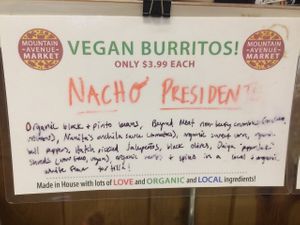 MOUNTAIN AVENUE MARKET
VEGAN BURRITOS!
MOUNTAIN AVENUE MARKET
ONLY $3.99 EACH
NACHO PRESIDENTE
Organic black + pinto beans, Beyond Meat non-beefy crumbles
enchilada sauce organic sweet corn, organic
bell peppers, Hatch jalapeños, black olives, Daiya "pepperjack"
shreds vegan), organic herbs + spices in a local + organic
white flour tortilla!
Made in House with lots of LOVE and ORGANIC and LOCAL ingredients!